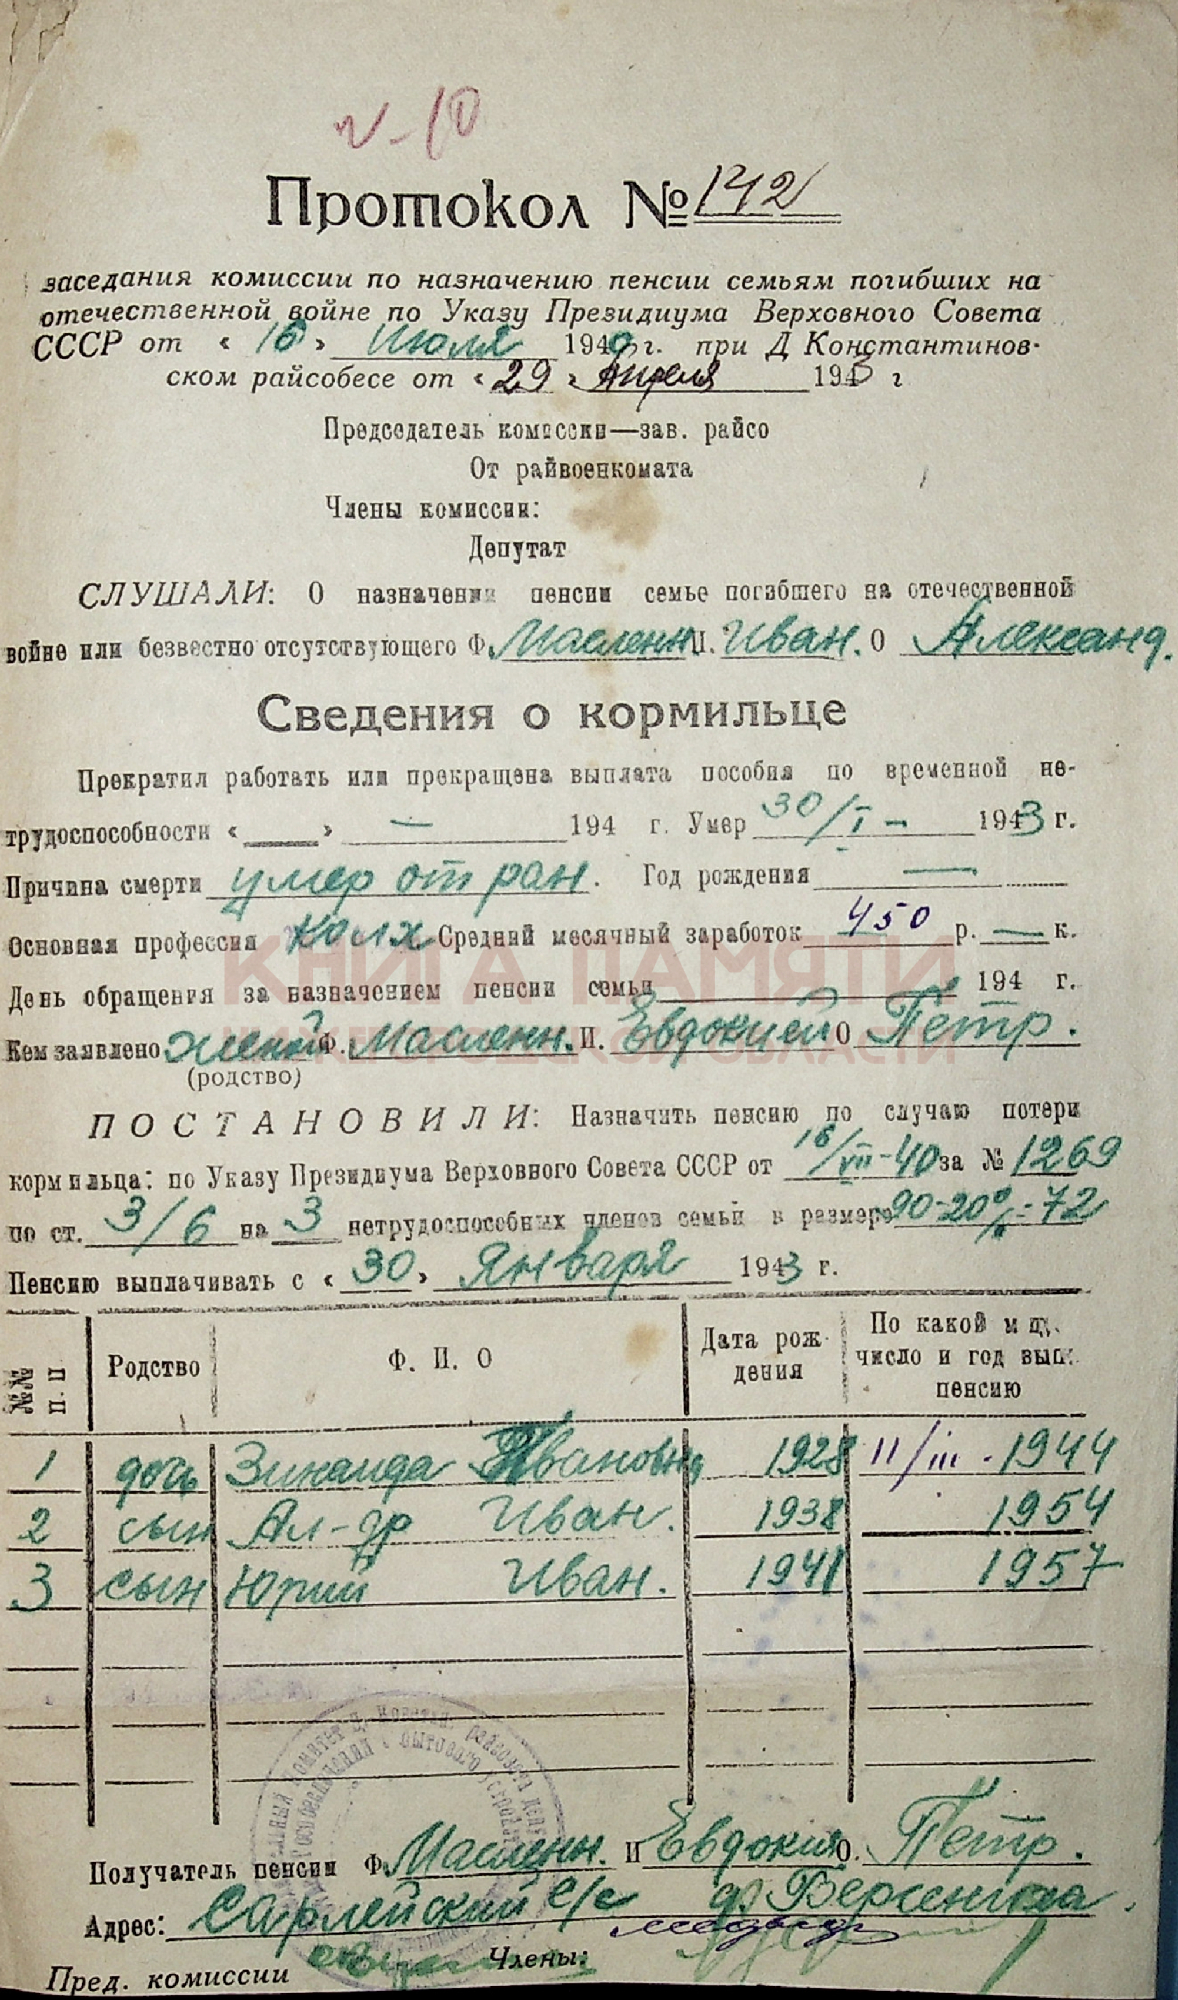 Протокол № 142
заседания комиссии по назначению пенсии семьям погибших на
отечественной войне по Указу Президиума Верховного Совета
СССР от «16» Июля 1940 г. при Д Константинов-
ском райсобесе от «29» Апреля 1943 г
Председатель комиссии—зав. райсо
От райвоенкомата
Члены комиссии:
Депутат
СЛУШАЛИ: О назначении пенсии семье погибшего на отечественной
войне или безвестно отсутствующего Ф. Масленн И. Иван. О Александ.
Сведения о кормильце
Прекратил работать или прекращена выплата пособия по временной не-
трудоспособности « » — 194 г. Умер 30/I – 1943 г.
Причина смерти умер от ран. Год рождения —
Основная профессия Колх Средний месячный заработок 450 р. — к.
КНИГА ПАМЯТИ
День обращения за назначением пенсии семьи 194 г.
НИЖЕГОРОДСКОЙ ОБЛАСТИ
Кем заявлено женой Ф. Масленн. И. Евдокией О Петр.
(родство)
ПОСТАНОВИЛИ: Назначить пенсию по случаю потери
кормильца: по Указу Президиума Верховного Совета СССР от 16/VII-40 за № 1269
по ст. 3/6 на 3 нетрудоспособных членов семьи в размере 90-20%=72
Пенсию выплачивать с «30» Января 1943 г.
№№ п. п Родство Ф. И. О Дата рож- дения По какой м-ц, число и год вып. пенсию
1 дочь Зинаида Ивановна 1928 11/III - 1944
2 сын Ал-др Иван. 1938 1954
3 сын Юрий Иван. 1941 1957
Получатель пенсии Ф. Масленн. И Евдокия О. Петр.
Адрес: Сарлейский с/с д.
Пред. комиссии Члены: